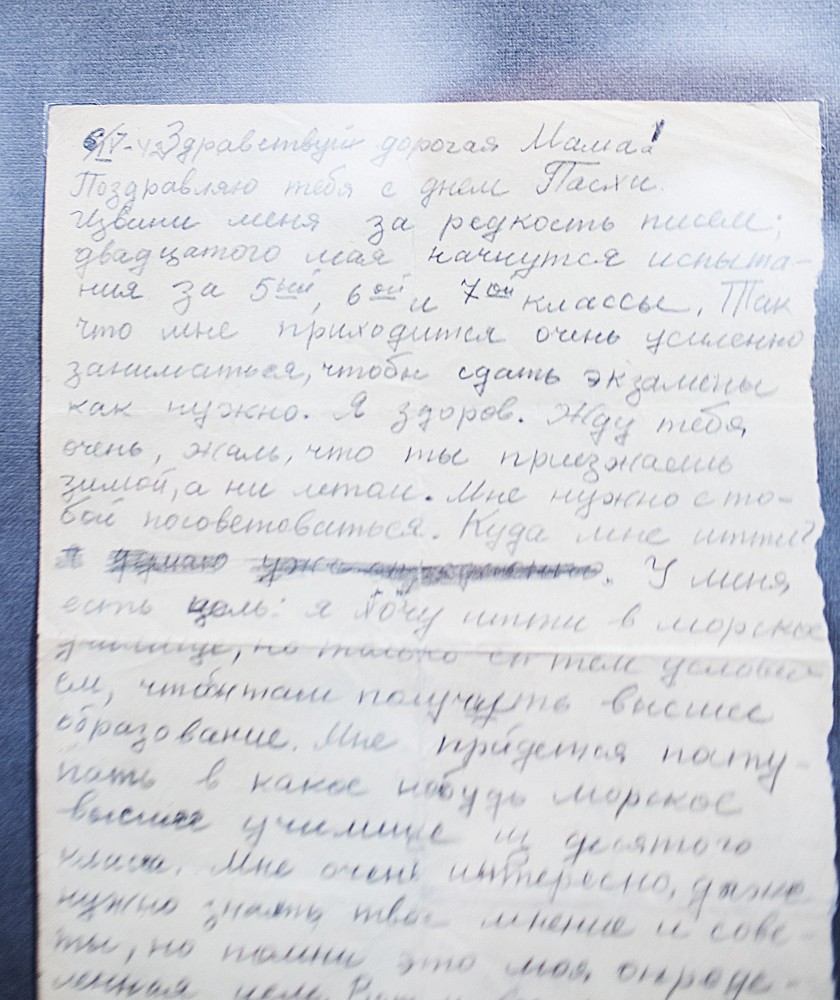 Здравствуй дорогая Мама!
Поздравляю тебя с днем Пасхи.
Извини меня за редкость писем;
двадцатого мая начнутся испыта-
ния за 5ый, 6ой и 7ой классы. Так
что мне приходится очень усиленно
заниматься, чтобы сдать экзамены
как нужно. Я здоров. Жду тебя
очень, жаль, что ты приезжаешь
зимой, а ни летом. Мне нужно с то-
бой посоветоваться. Куда мне итти?
У меня
есть цель: я хочу итти в морское
училище, но только с тем условия
ем, чтобы там получить высшее
образование. Мне придется посту-
пать в какое нибудь морское
высшее училище из десятого
класса. Мне очень интересно, даже
нужно знать твое мнение и сове-
ты, но помни это моя опреде-
ленная цель.